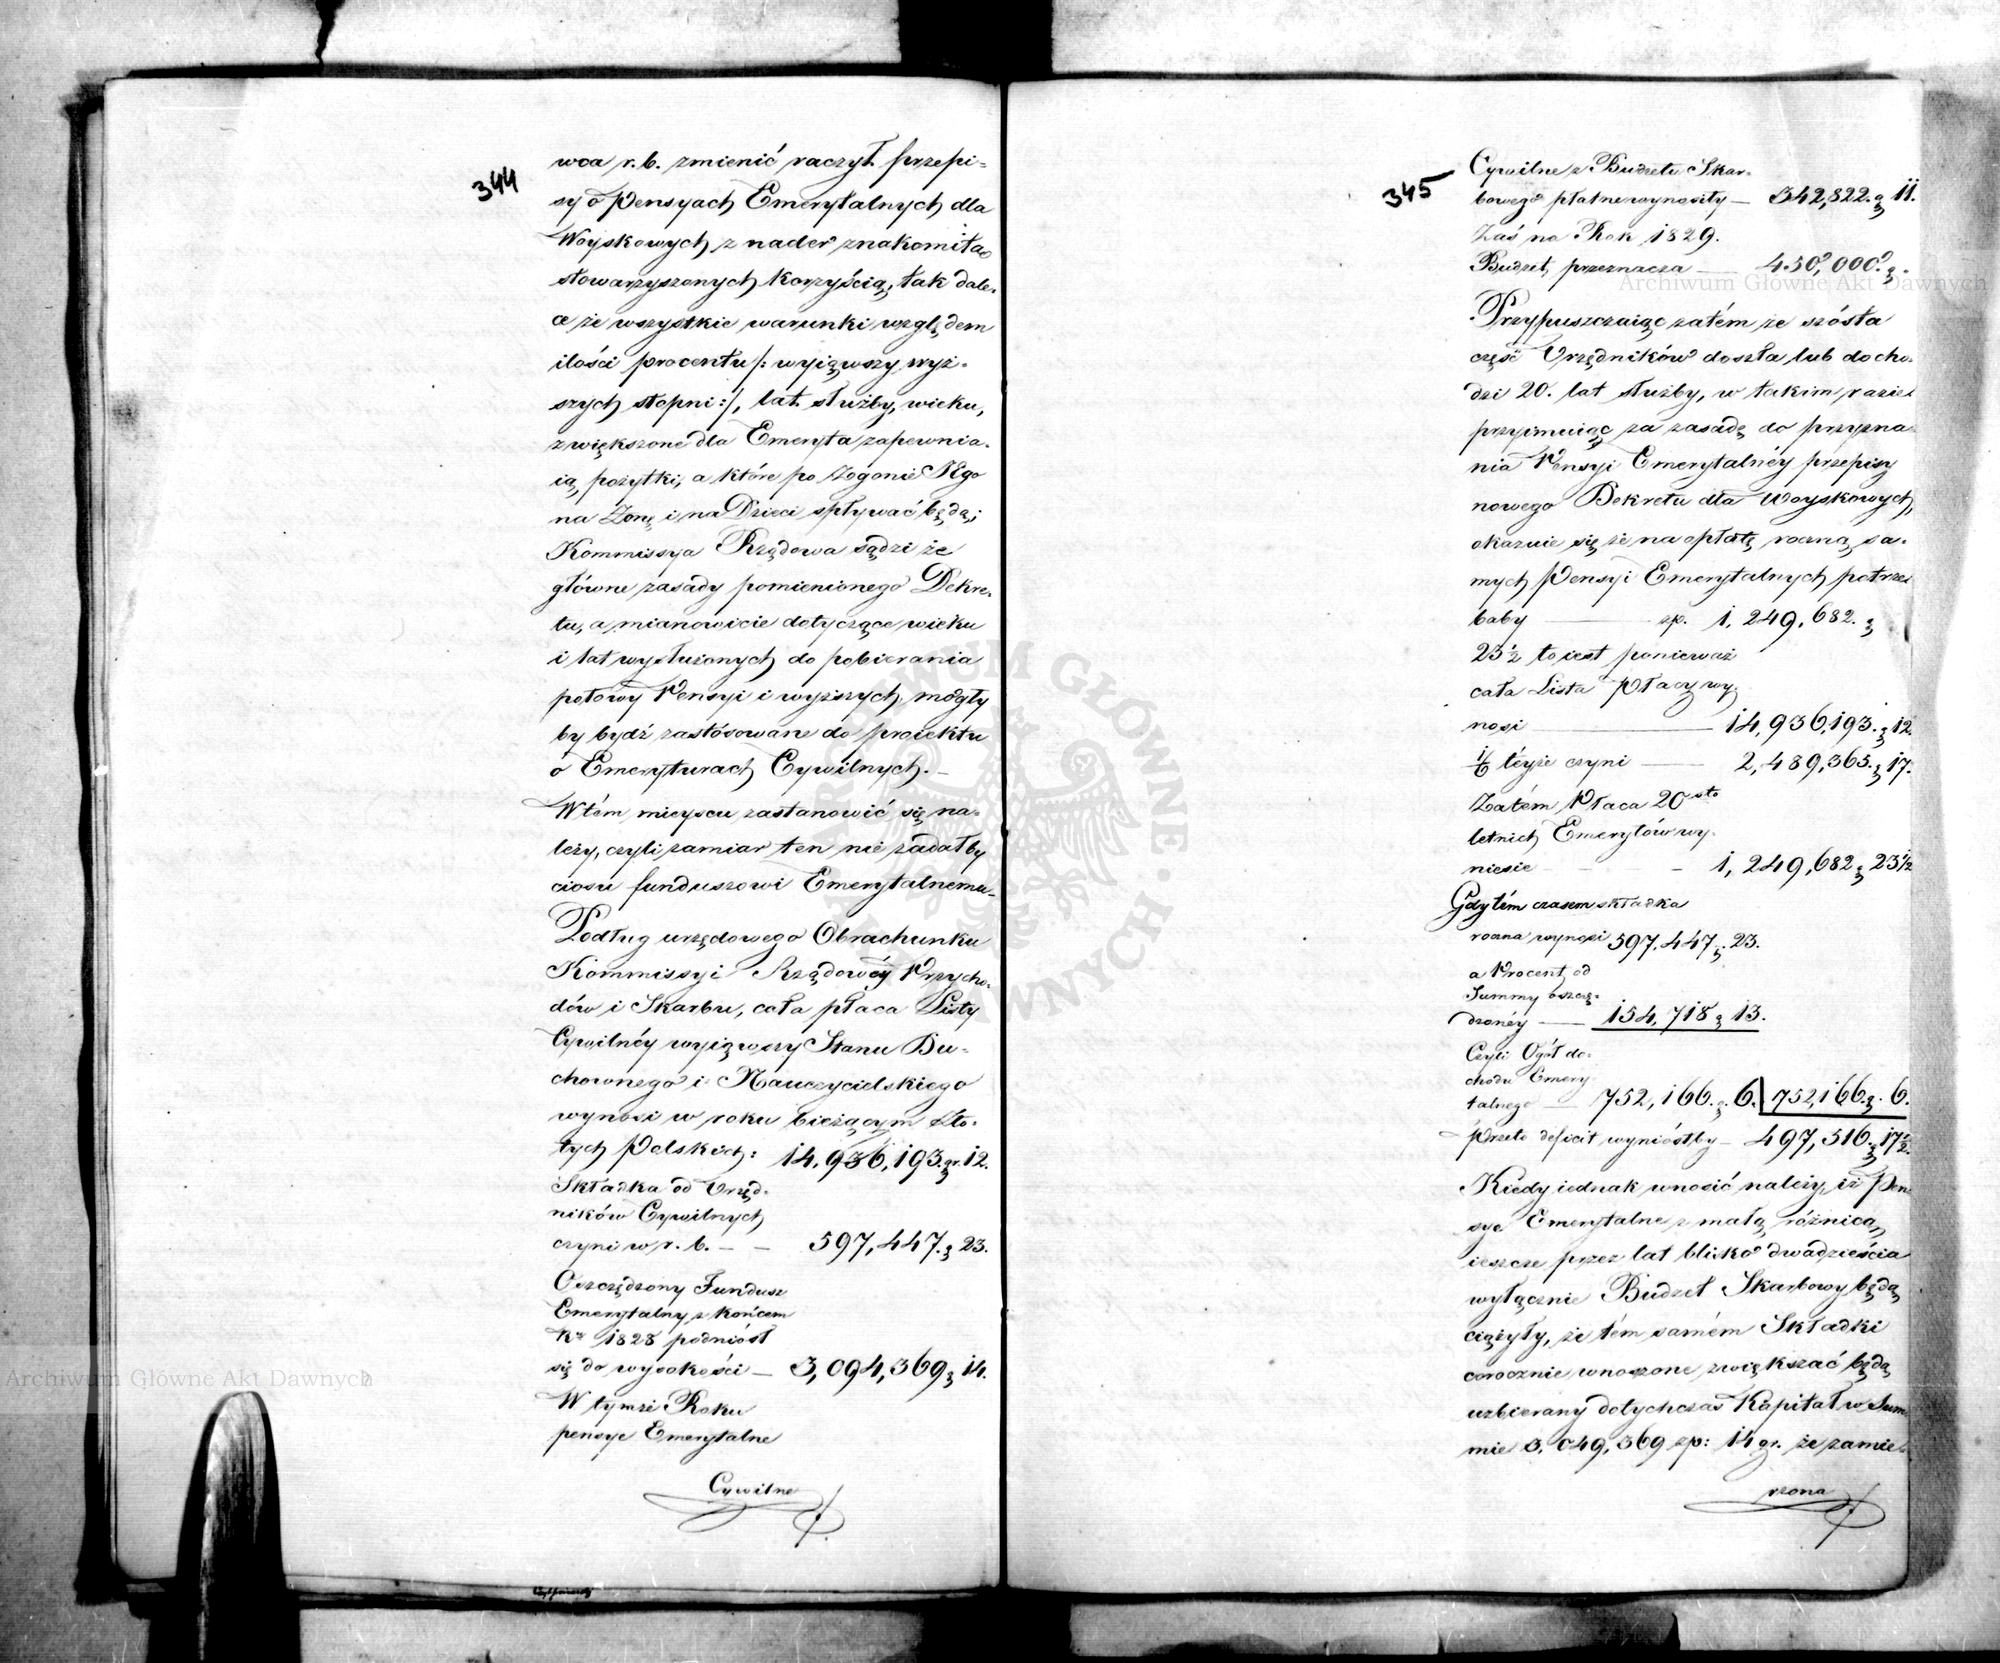 344
wca r. b. zmienić raczył przepi=
sy o Pensyach Emerytalnych dla
Woyskowych z nader znakomitą
stowarzyszonych korzyścią, tak dale=
ce że wszystkie warunki względem
ilości procentu /: wyiąwszy wyż=
szych stopni :/, lat służby, wieku,
zwiększone dla Emeryta zapewnia=
ią pożytki, a które po zgonie Jego
na Żonę i na Dzieci spływać będą;
Kommissya Rządowa sądzi że
główne zasady pomienionego Dekre=
tu, a mianowicie dotyczące wieku
i lat wysłużonych do pobierania
połowy Pensyi i wyższych, mogły
by bydź zastósowane do proiektu
o Emeryturach Cywilnych. –
W tém mieyscu zastanowić się na=
leży, czyli zamiar ten nie zadałby
ciosu funduszowi Emerytalnemu
Podług urzędowego Obrachunku
Kommissyi Rządowéy Przycho=
dów i Skarbu, cała płaca Listy
Cywilnéy wyiąwszy Stanu Du=
chownego i Nauczycielskiego
wynosi w roku bieżącym Zło=
tych Polskich: 14,936,193. gr. 12.
Składka od Urzęd=
ników Cywilnych
czyni w r. b. – – 597,447. g 23.
Oszczędzony Fundusz
Emerytalny z końcem
Ru 1828 podniósł
się do wysokości – 3,094,369 g 14.
W tymże Roku
pensye Emerytalne
Cywilne
345
Cywilne z Budżetu Skar=
bowego płatne wynosiły – 342,822. g 11.
Zaś na Rok 1829.
Budżet przeznacza – 450,000. g –
Przypuszczaiąc zatém że szósta
część Urzędników doszła lub docho=
dzi 20. lat służby, w takim razie
przyimuiąc za zasadę do przyzna=
nia Pensyi Emerytalnéy przepisy
nowego Dekretu dla Woyskowych,
okazuie się że na opłatę roczną sa=
mych Pensyi Emerytalnych potrze
baby – zp. 1,249,682. g
23½ to iest ponieważ
cała Lista Płacy wy=
nosi – 14,936,193. g 12.
1/6 téyże czyni – 2,489,365. g 17.
Zatém Płaca 20sto
letnich Emerytów wy=
niesie – – 1,249,682 g 23½
Gdy tém czasem składka
roczna wynosi 597,447 g 23.
a Procent od
Summy oszczę=
dzonéy – 154,718 g 13.
Czyli Ogół do=
chodu Emery
talnego – 752,166. g. 6. 752,166 g. 6.
przeto deficit wyniósłby – 497,516. g 17½.
Kiedy iednak wnosić należy, iż Pen
sye Emerytalne z małą różnicą,
ieszcze przez lat blisko dwadzieścia
wyłącznie Budżet Skarbowy będą
ciążyły, że tém samém Składki
corocznie wnoszone zwiększać będą
uzbierany dotychczas Kapitał w Sum
mie 3,049,369 zp: 14 gr. że zamie=
rzona
Archiwum Główne Akt Dawnych
Archiwum Główne Akt Dawnych
ARCHIWUM GŁÓWNE AKT DAWNYCH